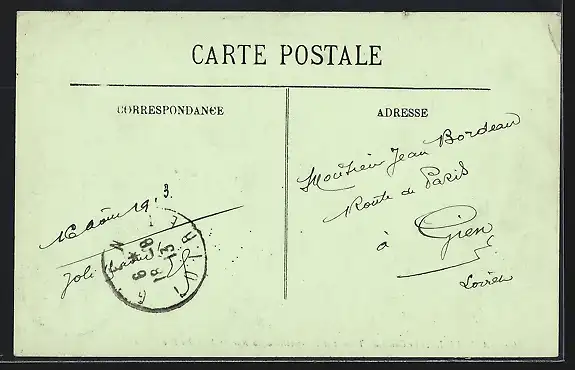 CARTE POSTALE
CORRESPONDANCE
ADRESSE
Monsieur Jean Bordeau
Route de Paris
à Gien
Loiret
16 Août 19.3.
Joli